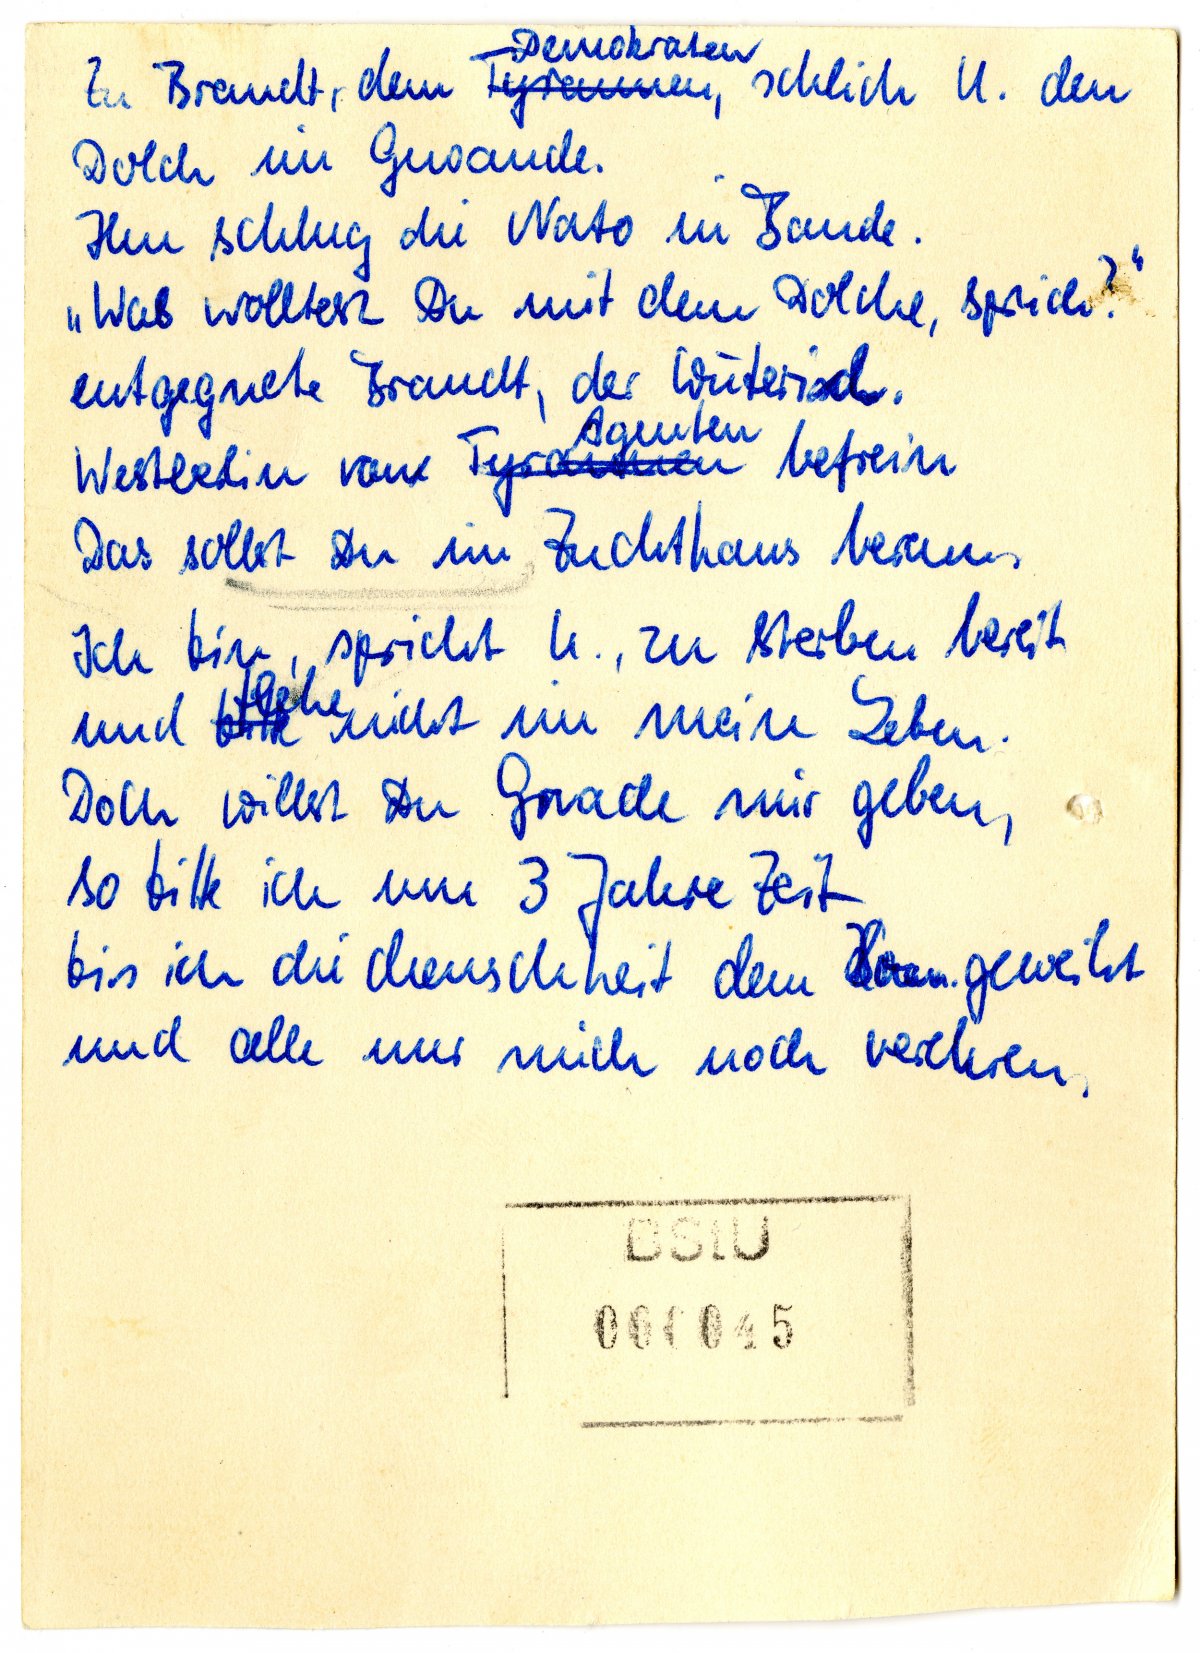 Zu Brandt, dem Tyrannen, Demokraten schlich U. den
Dolch im Gewande.
Ihn schlug die Nato in Bande.
„Was wolltest Du mit dem Dolche, sprich?“
entgegnete Brandt, der Wüterich.
Westberlin vom Tyrannen Agenten befrein
Das sollst Du im Zuchthaus bereun,
Ich bin, spricht U., zu sterben bereit
und bitte flehe nicht um mein Leben.
Doch willst Du Gnade mir geben,
so bitt ich um 3 Jahre Zeit
bis ich die Menschheit dem geweiht
und alle nur mich noch verehren,
BStU
000045